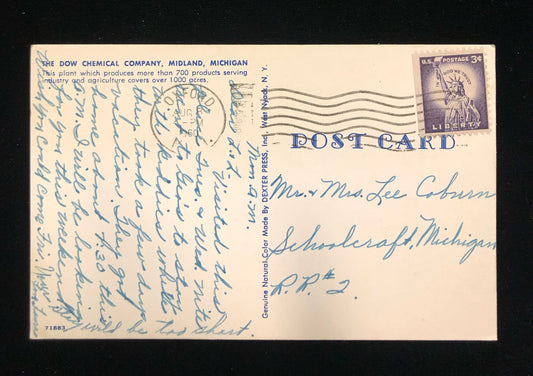 THE DOW CHEMICAL COMPANY, MIDLAND, MICHIGAN
This plant which produces more than 700 products serving
industry and agriculture covers over 1000 acres.
U.S. POSTAGE 3¢
IN GOD WE TRUST
LIBERTY
OXFORD
POST CARD
Genuine Natural Color Made By DEXTER PRESS, Inc. West Nyack, N. Y.
Mr. & Mrs. Lee Coburn
Schoolcraft, Michigan
R.R.# 2.
Mon. a.m.
Visited this
plant Tues. & Wed. nite
went to Geo's to stay
with the kiddies while
they took a few days
vacation. They got
home about 4:30 this
a.m. I will be looking
for you this weekend.
Wish you could come Fri.
will be too short.
71883